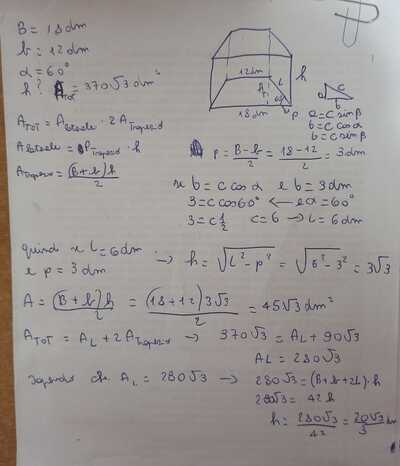 B = 18 dm
b = 12 dm
α = 60°
h? A_TOT = 370√3 dm²
12dm
h
L
h
60°
18dm
p
c
a
b
a = c sin β
b = c cos α
b = c sin β
A_TOT = A_laterale + 2A_Trapezio
A_laterale = P_Trapezio · h
A_Trapezio = (B+b)h / 2
p = B-b / 2 = 18-12 / 2 = 3 dm
se b = c cos α e b = 3 dm
3 = c cos 60° ← e α = 60°
3 = c 1/2 c = 6 → L = 6 dm
quindi se L = 6 dm
e p = 3 dm → h = √L²-p² = √6²-3² = 3√3
A = (B+b)h / 2 = (18+12)3√3 / 2 = 45√3 dm²
A_TOT = A_L + 2A_Trapezio → 370√3 = A_L + 90√3
A_L = 280√3
Sapendo che A_L = 280√3 → 280√3 = (B+b+2L)·h
280√3 = 42h
h = 280√3 / 42 = 20√3 / 3 dm